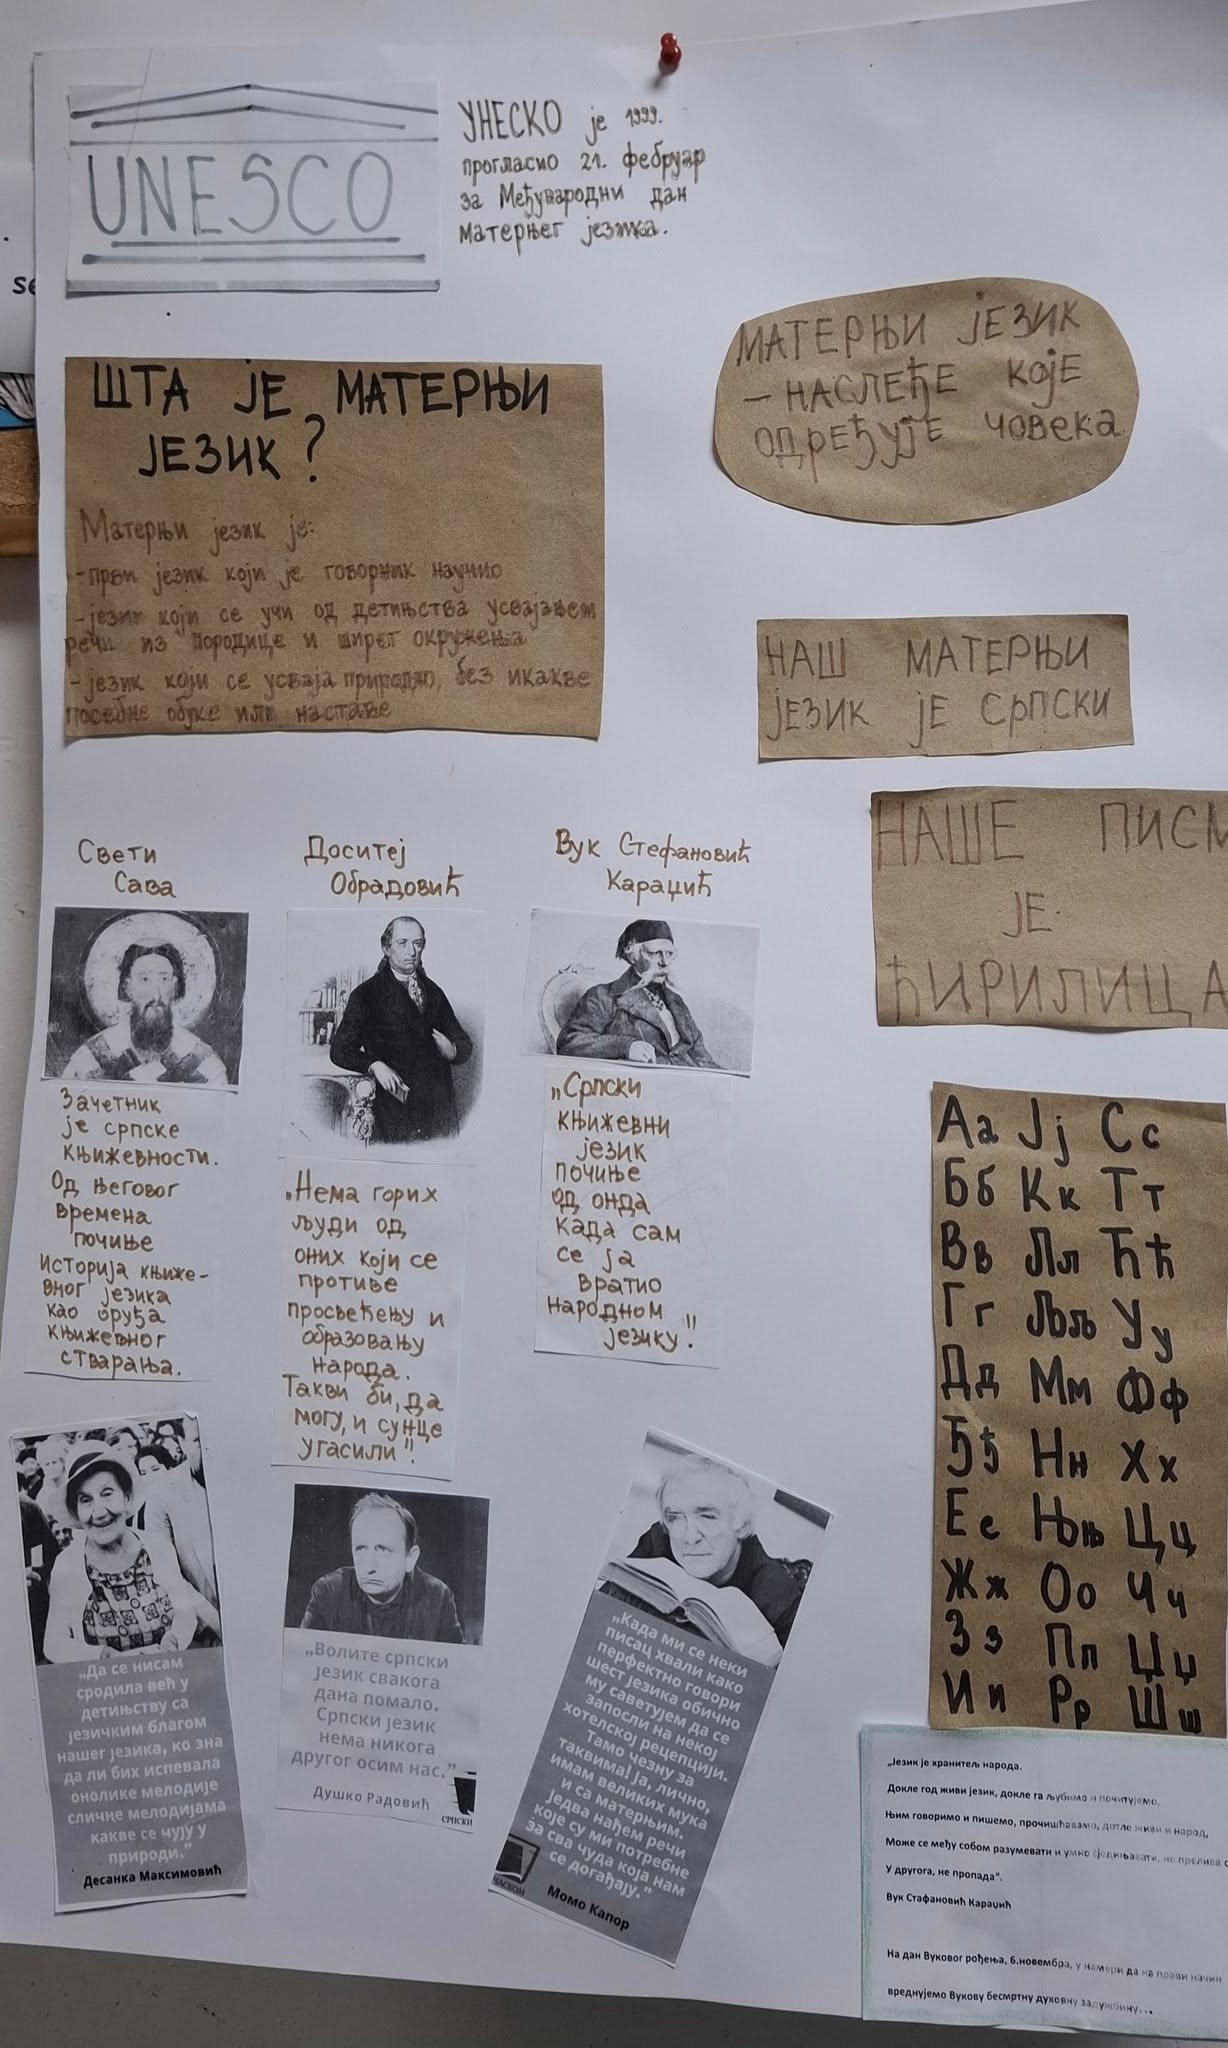 UNESCO
УНЕСКО је 1999.
прогласио 21. фебруар
за Међународни дан
матерњег језика.
МАТЕРЊИ ЈЕЗИК
– НАСЛЕЂЕ КОЈЕ
ОДРЕЂУЈЕ ЧОВЕКА
ШТА ЈЕ МАТЕРЊИ
ЈЕЗИК?
Матерњи језик је:
-први језик који је говорник научио
-језик који се учи од детињства усвајањем
речи из породице и ширег окружења
-језик који се усваја природно, без икакве
посебне обуке или наставе
НАШ МАТЕРЊИ
ЈЕЗИК ЈЕ СРПСКИ
НАШЕ ПИСМ
ЈЕ
ЋИРИЛИЦА
Свети
Сава
Зачетник
је српске
књижевности.
Од његовог
времена
почиње
историја књиже-
вног језика
као оруђа
књижевног
стварања.
Доситеј
Обрадовић
„Нема горих
људи од
оних који се
противе
просвећењу и
образовању
народа.
Такви би, да
могу, и сунце
угасили".
Вук Стефановић
Караџић
„Српски
књижевни
језик
почиње
од онда
када сам
се ја
вратио
народном
језику!"
Аа Јј Сс
Бб Кк Тт
Вв Лл Ћћ
Гг Љљ Уу
Дд Мм Фф
Ђђ Нн Хх
Ее Њњ Цц
Жж Оо Чч
Зз Пп Џџ
Ии Рр Шш
„Да се нисам
сродила већ у
детињству са
језичким благом
нашег језика, ко зна
да ли бих испевала
онолике мелодије
сличне мелодијама
какве се чују у
природи.”
Десанка Максимовић
„Волите српски
језик свакога
дана помало.
Српски језик
нема никога
другог осим нас.”
Душко Радовић
СРПСКИ
„Када ми се неки
писац хвали како
перфектно говори
шест језика обично
му саветујем да се
запосли на некој
хотелској рецепцији.
Тамо чезну за
таквима! Ја, лично,
имам великих мука
и са матерњим.
Једва нађем речи
које су ми потребне
за сва чуда која нам
се догађају.”
Момо Капор
„Језик је хранитељ народа.
Докле год живи језик, докле га љубимо и почитујемо,
Њим говоримо и пишемо, прочишћавамо, дотле живи и народ,
Може се међу собом разумевати и умно сједињавати, не прелива с
У другога, не пропада“.
Вук Стафановић Караџић
На дан Вуковог рођења, 6.новембра, у намери да на прави начин
вреднујемо Вукову бесмртну духовну задужбину...